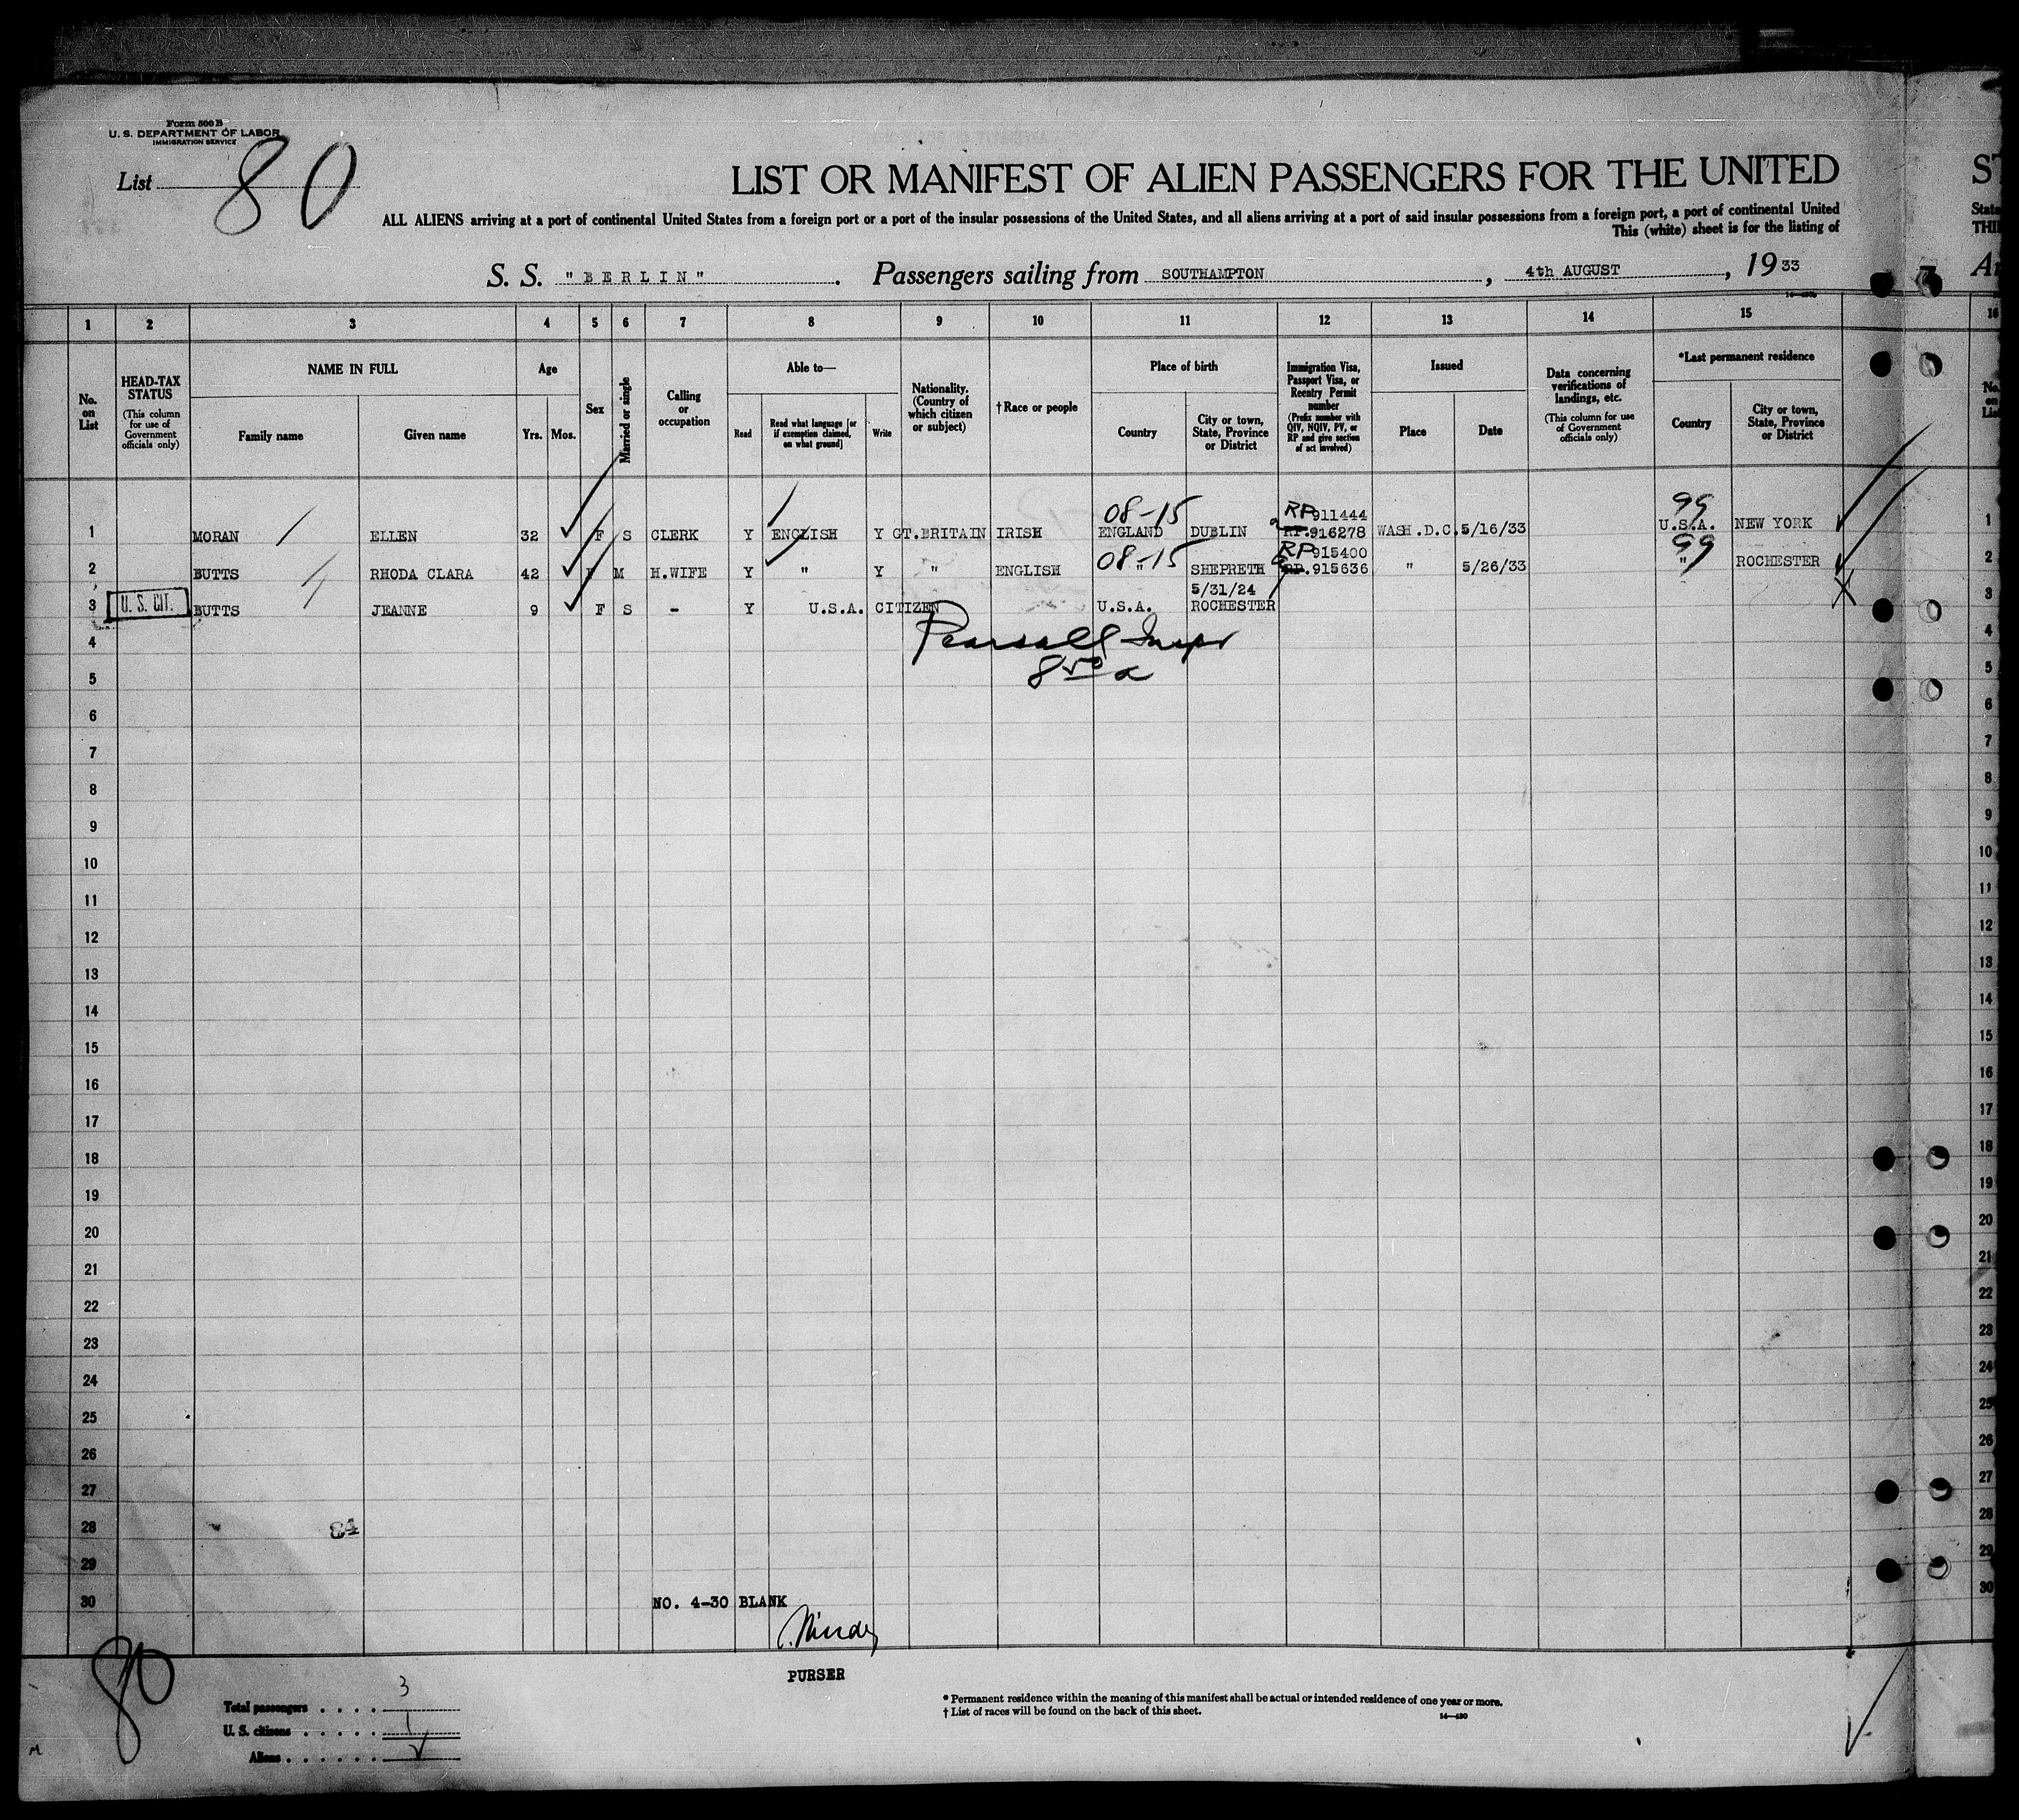 Form 500 B
U. S. DEPARTMENT OF LABOR
IMMIGRATION SERVICE
List 80
LIST OR MANIFEST OF ALIEN PASSENGERS FOR THE UNITED
ALL ALIENS arriving at a port of continental United States from a foreign port or a port of the insular possessions of the United States, and all aliens arriving at a port of said insular possessions from a foreign port, a port of continental United
This (white) sheet is for the listing of
S. S. "BERLIN". Passengers sailing from SOUTHAMPTON, 4th AUGUST, 1933
1 2 3 4 5 6 7 8 9 10 11 12 13 14 15 16
No. on List
HEAD-TAX STATUS (This column for use of Government officials only)
NAME IN FULL
Family name
Given name
Age
Yrs. Mos.
Sex
Married or single
Calling or occupation
Able to—
Read
Read what language [or if exemption claimed, on what ground]
Write
Nationality. (Country of which citizen or subject)
† Race or people
Place of birth
Country
City or town, State, Province or District
Immigration Visa, Passport Visa, or Reentry Permit number (Prefix number with QIV, NQIV, PV, or RP and give section of act involved)
Issued
Place
Date
Data concerning verifications of landings, etc. (This column for use of Government officials only)
*Last permanent residence
Country
City or town, State, Province or District
08-15 RP 911444 99
1 MORAN ELLEN 32 F S CLERK Y ENGLISH Y GT.BRITAIN IRISH ENGLAND DUBLIN RP.916278 WASH.D.C. 5/16/33 U.S.A. NEW YORK 1
08-15 RP 915400 99
2 BUTTS RHODA CLARA 42 F M H.WIFE Y " Y " ENGLISH " SHEPRETH RP.915636 " 5/26/33 " ROCHESTER 2
5/31/24
3 U. S. CIT. BUTTS JEANNE 9 F S - Y U.S.A. CITIZEN U.S.A. ROCHESTER 3
4 Pearsall Inspr 4
5 8 50 a 5
6 6
7 7
8 8
9 9
10 10
11 11
12 12
13 13
14 14
15 15
16 16
17 17
18 18
19 19
20 20
21 21
22 22
23 23
24 24
25 25
26 26
27 27
28 84 28
29 29
30 NO. 4-30 BLANK 30
80
PURSER
Total passengers . . . . 3
U. S. citizens . . . . . 1
Aliens . . . . . .
* Permanent residence within the meaning of this manifest shall be actual or intended residence of one year or more.
† List of races will be found on the back of this sheet.
14—480